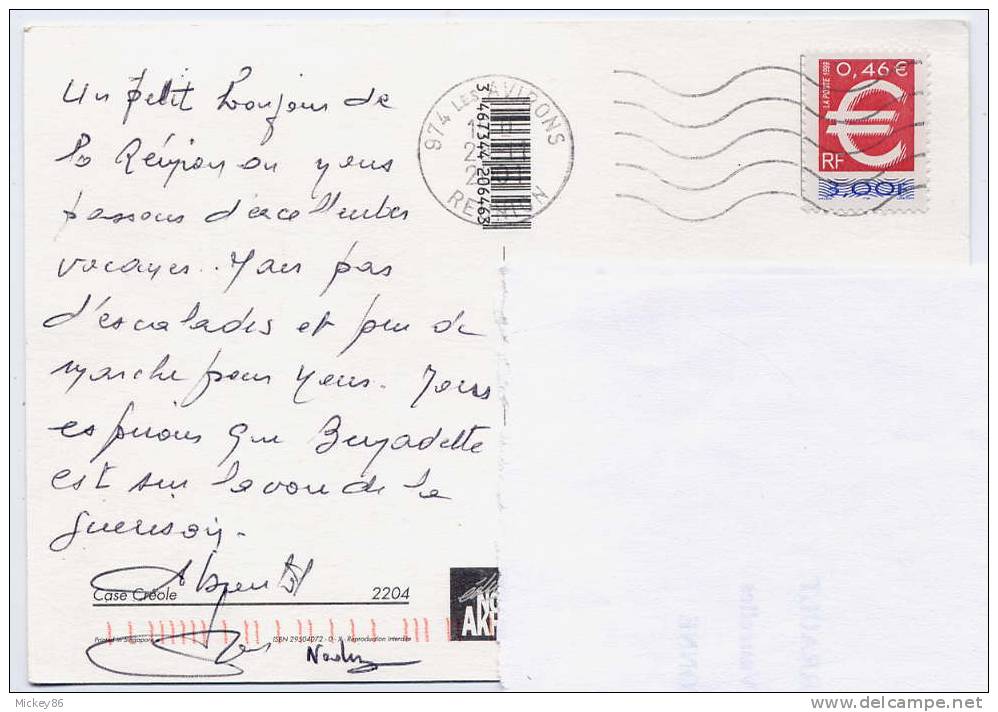 Un petit bonjour de
la Réunion où nous
passons d'excellentes
vacances.. Mais pas
d'escalades et peu de
marche pour nous. Nous
espérons que Bernadette
est sur la voie de la
guérison.
Case Créole 2204
Printed in Singapore ISBN 29504072-0-X Reproduction interdite
974 LES AVIRONS
REUNION
3 467344 206463
0,46 €
LA POSTE 1999
RF
3,00F
Mickey86
delcampe.net